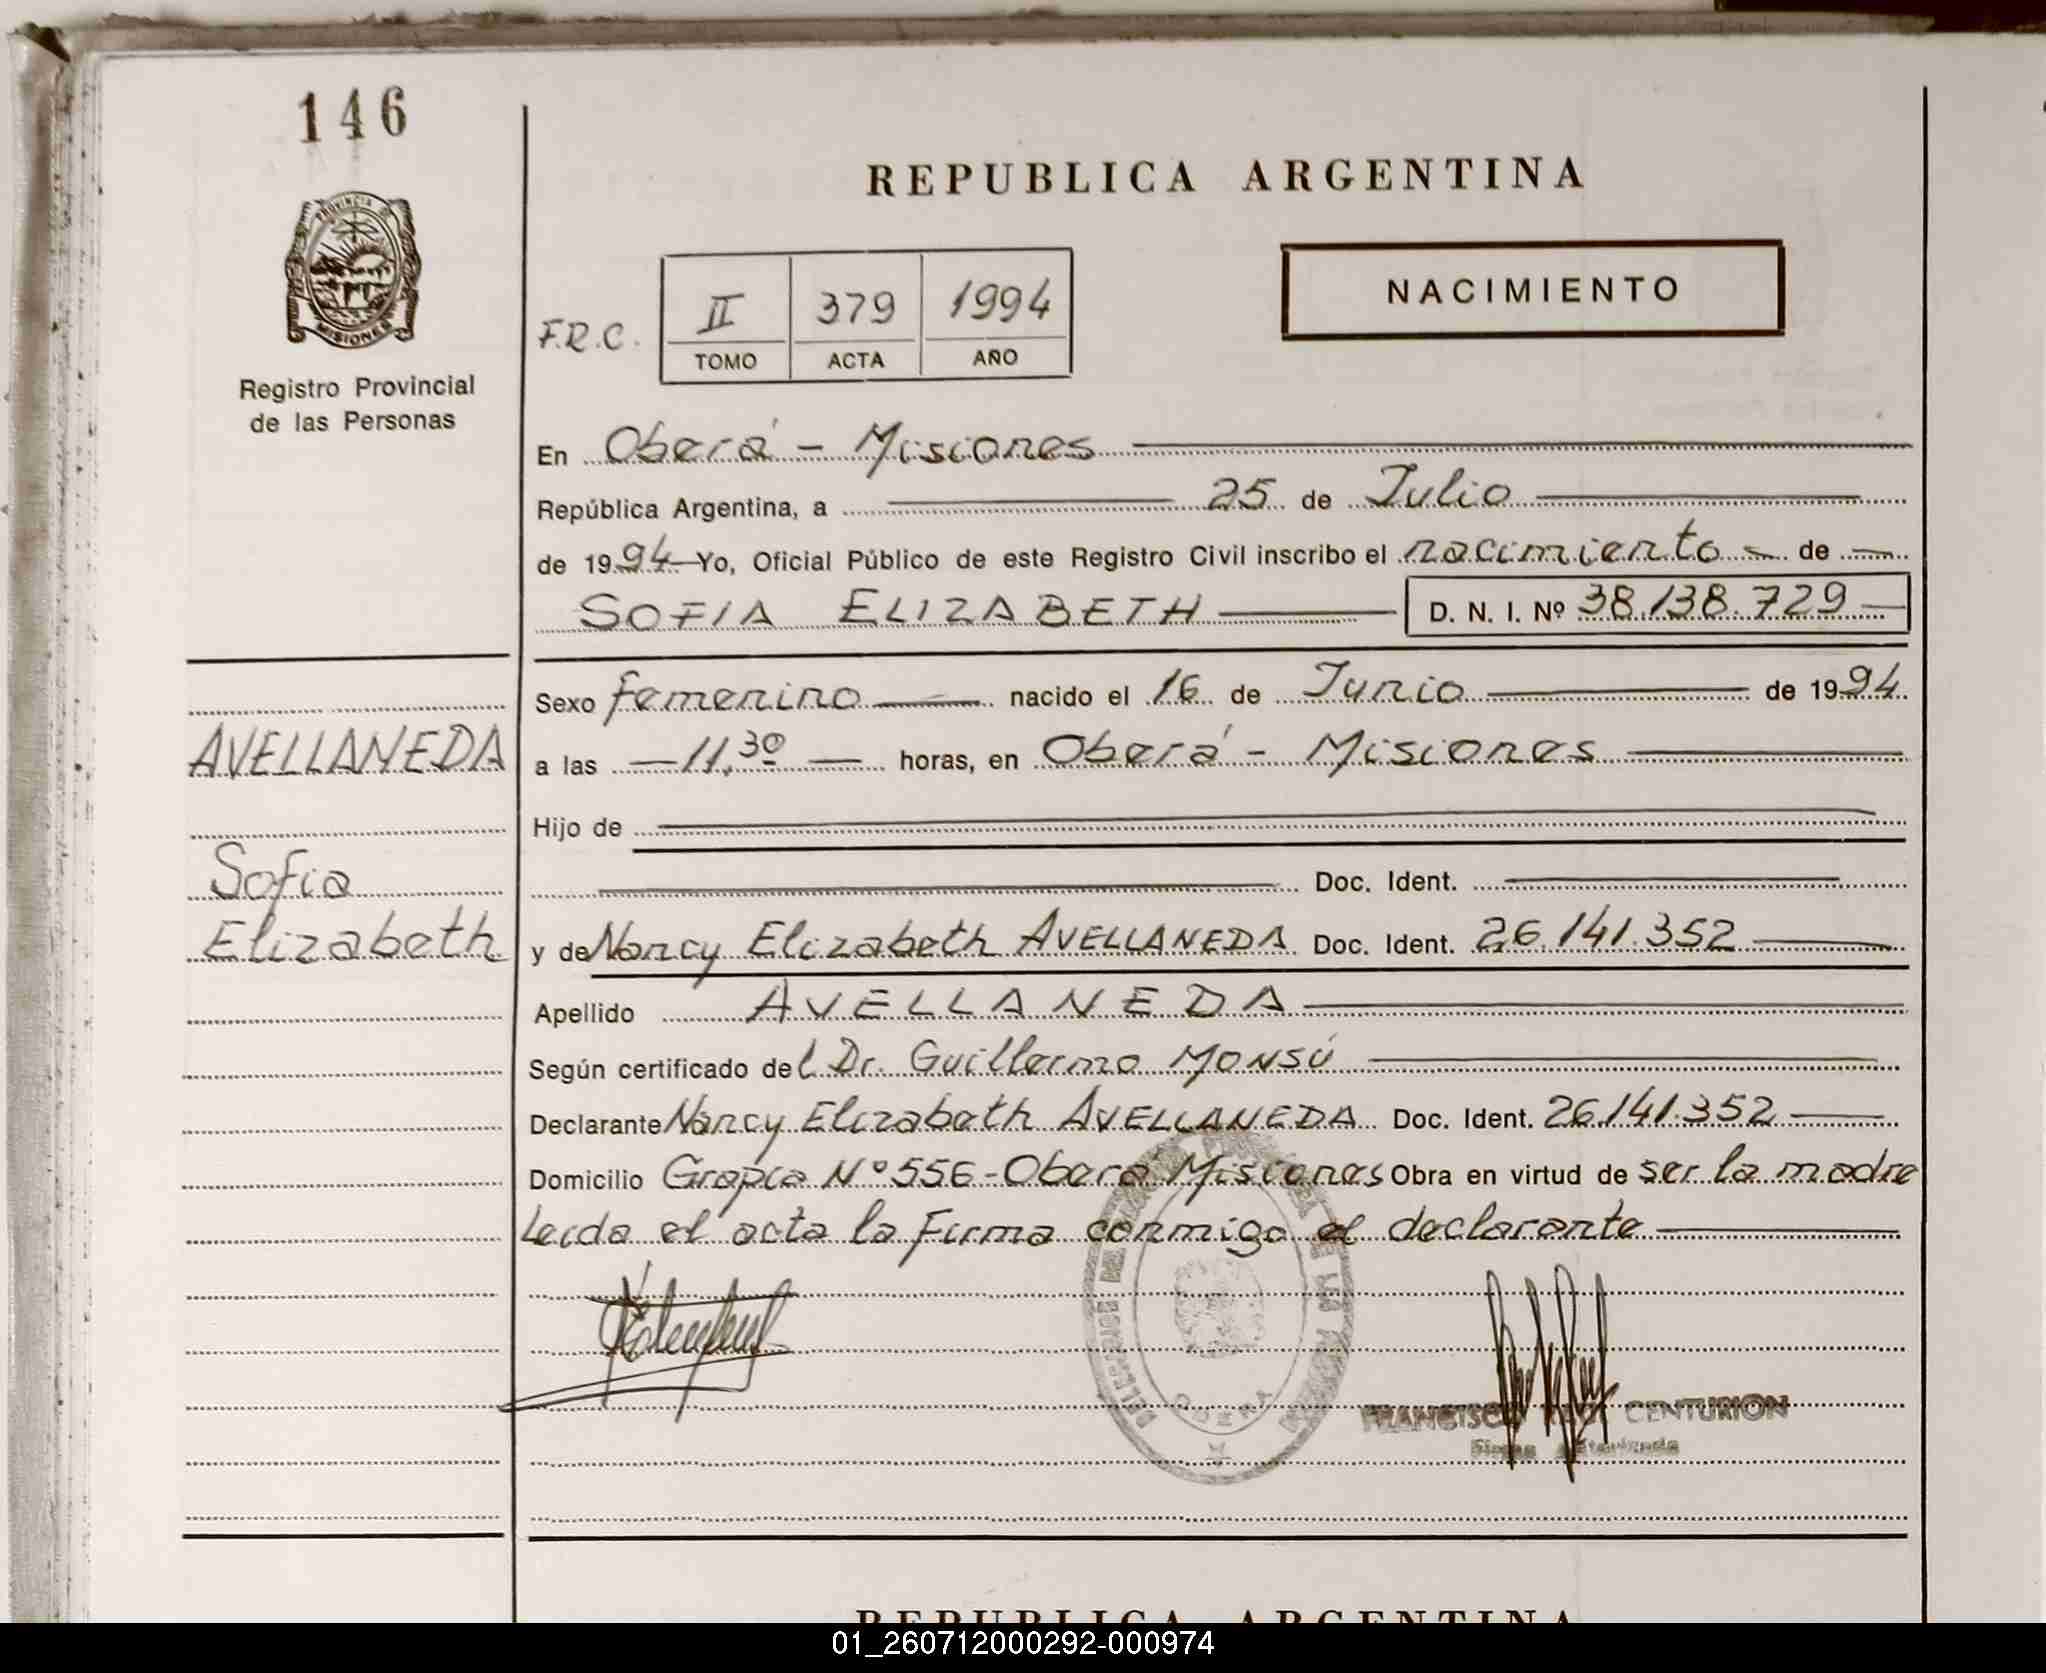 146
REPUBLICA ARGENTINA
PROVINCIA DE
MISIONES
Registro Provincial
de las Personas
NACIMIENTO
F.R.C.
II 379 1994
TOMO ACTA AÑO
En Oberá - Misiones
República Argentina, a 25 de Julio
de 1994 Yo, Oficial Público de este Registro Civil inscribo el nacimiento de
SOFIA ELIZABETH D. N. I. Nº 38.138.729
Sexo femenino nacido el 16 de Junio de 1994
AVELLANEDA
a las 11.30 horas, en Oberá - Misiones
Hijo de
Sofia
Doc. Ident.
Elizabeth
y de Nancy Elizabeth AVELLANEDA Doc. Ident. 26.141.352
Apellido AVELLANEDA
Según certificado del Dr. Guillermo MONSÚ
Declarante Nancy Elizabeth AVELLANEDA Doc. Ident. 26.141.352
Domicilio Grapia Nº 556 - Oberá Misiones Obra en virtud de ser la madre
Leida el acta la firma conmigo el declarante
OBERA
FRANCISCO CENTURION